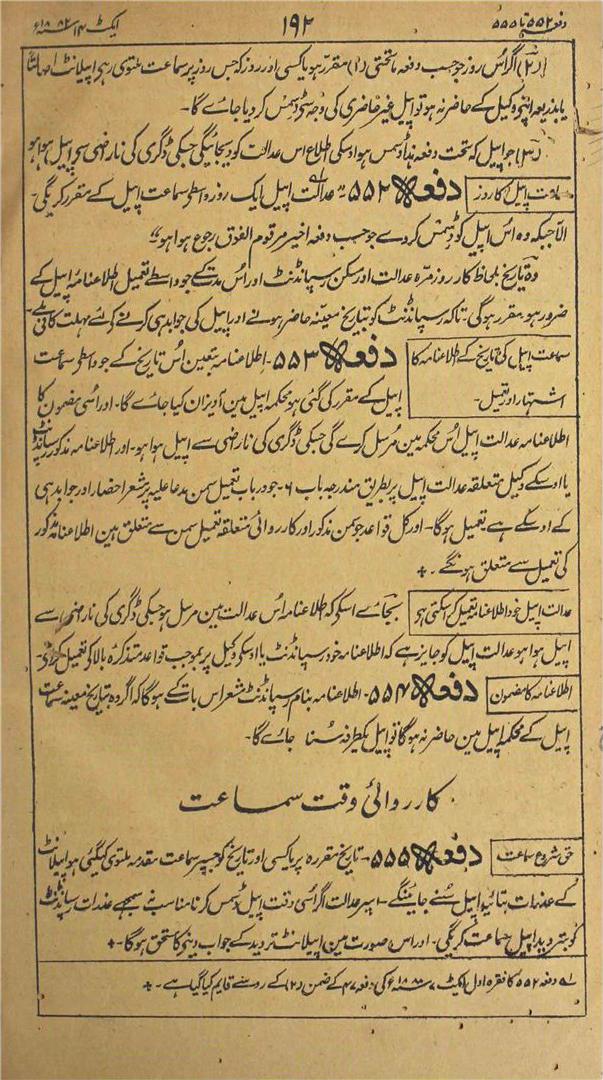 دفعہ ۵۵۲ تا ۵۵۵ ۱۹۲ ایکٹ ۱۴ سنہ ۱۸۸۲ع
(۲) اگر اُس روز جو حسب دفعہ ماتحتی (۱) مقرر ہو یا کسی اور روز کہ جس روز پر سماعت ملتوی رہی اپیلانٹ اصالتاً
یا بذریعہ اپنے وکیل کے حاضر نہ ہو تو اپیل غیر حاضری کی وجہ سے ڈسمس کر دیا جاے گا۔
(۳) جو اپیل کہ تحت دفعہ ہذا ڈسمس ہو اوسکی اطلاع اس عدالت کو دیجائیگی جسکی ڈگری کی ناراضی سے اپیل ہوا ہو
سماعت اپیل کا روز
دفعہ ۵۵۲ عدالت اپیل ایک روز واسطے سماعت اپیل کے مقرر کریگی۔
الّا جبکہ وہ اُس اپیل کو ڈسمس کر دے جو حسب دفعہ اخیر مرقوم الفوق رجوع ہوا ہو
وہ تاریخ بلحاظ کار روزمرّہ عدالت اور مسکن رسپانڈنٹ اور اُس مدت کے جو واسطے تعمیل اطلاعنامہ اپیل کے
ضرور ہو مقرر ہوگی۔ تاکہ رسپانڈنٹ کو بتاریخ معیّنہ حاضر ہونے اور اپیل کی جوابدہی کرنے کے لئے مہلت کافی ملے۔
سماعت اپیل کی تاریخ کے اطلاعنامہ کا
اشتہار اور تعمیل۔
دفعہ ۵۵۳۔ اطلاعنامہ بتعین اُس تاریخ کے جو واسطے سماعت
اپیل کے مقرر کی گئی ہو محکمہ اپیل مین آویزان کیا جاے گا۔ اور اسی مضمون کا
اطلاعنامہ عدالت اپیل اُس محکمہ مین مُرسل کرے گی جسکی ڈگری کی ناراضی سے اپیل ہوا ہو۔ اور اطلاعنامہ مذکور رسپانڈنٹ
یا اوسکے وکیل متعلقہ عدالت اپیل پر بطریق مندرجہ باب ۶۔ جو در باب تعمیل سمن مدعاعلیہ پر مشعر احضار اور جوابدہی
کے اوسکے ہے تعمیل ہوگا۔ اور کل قواعد جو سمن مذکور اور کارروائی متعلقہ تعمیل سمن سے متعلق ہین اطلاعنامہ مذکور
کی تعمیل سے متعلق ہونگے۔
عدالت اپیل خود اطلاعنامہ تعمیل کر سکتی ہی
بجاے اسکے کہ اطلاعنامہ اُس عدالت مین مرسل ہو جسکی ڈگری کی ناراضی سے
اپیل ہوا ہو عدالت اپیل کو جایز ہے کہ اطلاعنامہ خود رسپانڈنٹ یا اوسکے وکیل پر بموجب قواعد متذکرہ بالا کے تعمیل کرے۔
اطلاعنامہ کا مضمون
دفعہ ۵۵۴۔ اطلاعنامہ بنام رسپانڈنٹ مشعر اس بات کے ہوگا کہ اگر وہ بتاریخ معینہ سماعت
اپیل کے محکمہ اپیل مین حاضر نہ ہوگا تو اپیل یکطرفہ سُنا جاے گا۔
کارروائی وقت سماعت
حق شروع سماعت
دفعہ ۵۵۵۔ تاریخ مقررہ پر یا کسی اور تاریخ کو جسپر سماعت مقدمہ ملتوی کیگئی ہو اپیلانٹ
کے عذرات بتائید اپیل سُنے جاینگے۔ اسپر عدالت اگر اُسی وقت اپیل ڈسمس کرنا مناسب نہ سمجھے عذرات رسپانڈنٹ
کو بتردید اپیل سماعت کریگی۔ اور اس صورت مین اپیلانٹ تردید کے جواب دینے کا مستحق ہوگا۔
دفعہ ۵۵۲ کا فقرہ اول ایکٹ ۷ سنہ ۱۸۸۸ع کی دفعہ ۴۷ کے ضمن (۲) کے رو سے قایم کیا گیا ہے۔